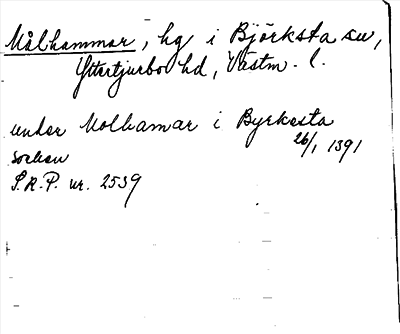 Målhammar, hg i Björksta sn,
Yttertjurbo hd, Västm. l.
under Molhamar i Byrkesta
sochen
26/1 1391
S.R.P. nr. 2539